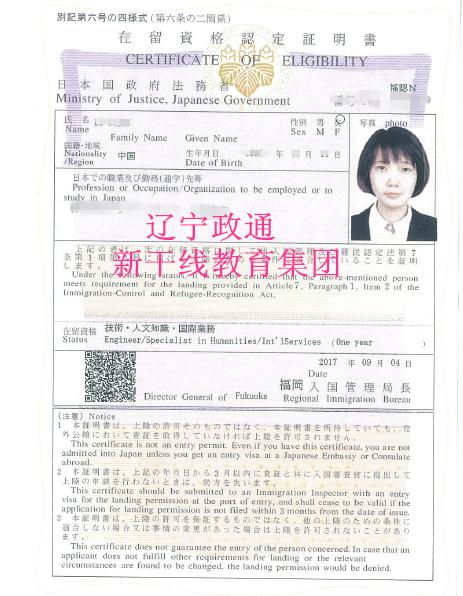 別記第六号の四様式(第六条の二関係)
在留資格認定証明書
CERTIFICATE OF ELIGIBILITY
日本国政府法務省
福認N
Ministry of Justice, Japanese Government
番号
氏名
Name
Family Name Given Name
性別 男 女
Sex M F
写真 photo
国籍・地域
Nationality /Region
中国
生年月日
Date of Birth
日本での職業及び勤務(通学)先等
Profession or Occupation/Organization to be employed or to
study in Japan
辽宁政通
新干线教育集团
Under the following status, it is hereby certified that the above-mentioned person
meets requirement for the landing provided in Article 7, Paragraph 1, Item 2 of the
Immigration-Control and Refugee-Recognition Act.
在留資格 技術・人文知識・国際業務
Status Engineer/Specialist in Humanities/Int'lServices (One year )
2017 年 09 月 04 日
Date
福岡 入国管理局長
Director General of Fukuoka Regional Immigration Bureau
(注意) Notice
1 本証明書は、上陸の許可そのものではなく、本証明書を所持していても、在
外公館において査証を取得していなければ上陸を許可されません。
This certificate is not an entry permit. Even if you have this certificate, you are not
admitted into Japan unless you get an entry visa at a Japanese Embassy or Consulate
abroad.
2 本証明書は、上記の年月日から3月以内に査証と共に入国審査官に提出して
上陸の申請を行わないときは、効力を失います。
This certificate should be submitted to an Immigration Inspector with an entry
visa for the landing permission at the port of entry, and shall cease to be valid if the
application for landing permission is not filed within 3 months from the date of issue.
3 本証明書は、上陸の許可を保証するものではなく、他の上陸のための条件に
適合しない場合又は事情の変更があった場合は上陸を許可されないことがあり
ます。
This certificate does not guarantee the entry of the person concerned. In case that an
applicant does not fulfill other requirements for landing or the relevant
circumstances are found to be changed, the landing permission would be denied.